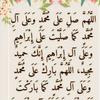 اللَّهُمَّ صَلِّ عَلَى مُحَمَّدٍ وَعَلَى آلِ
مُحَمَّدٍ كَمَا صَلَّيْتَ عَلَى إِبْرَاهِيمَ
وَعَلَى آلِ إِبْرَاهِيمَ إِنَّكَ حَمِيدٌ
مَجِيدٌ اللَّهُمَّ بَارِكْ عَلَى مُحَمَّدٍ
وَعَلَى آلِ مُحَمَّدٍ كَمَا بَارَكْتَ